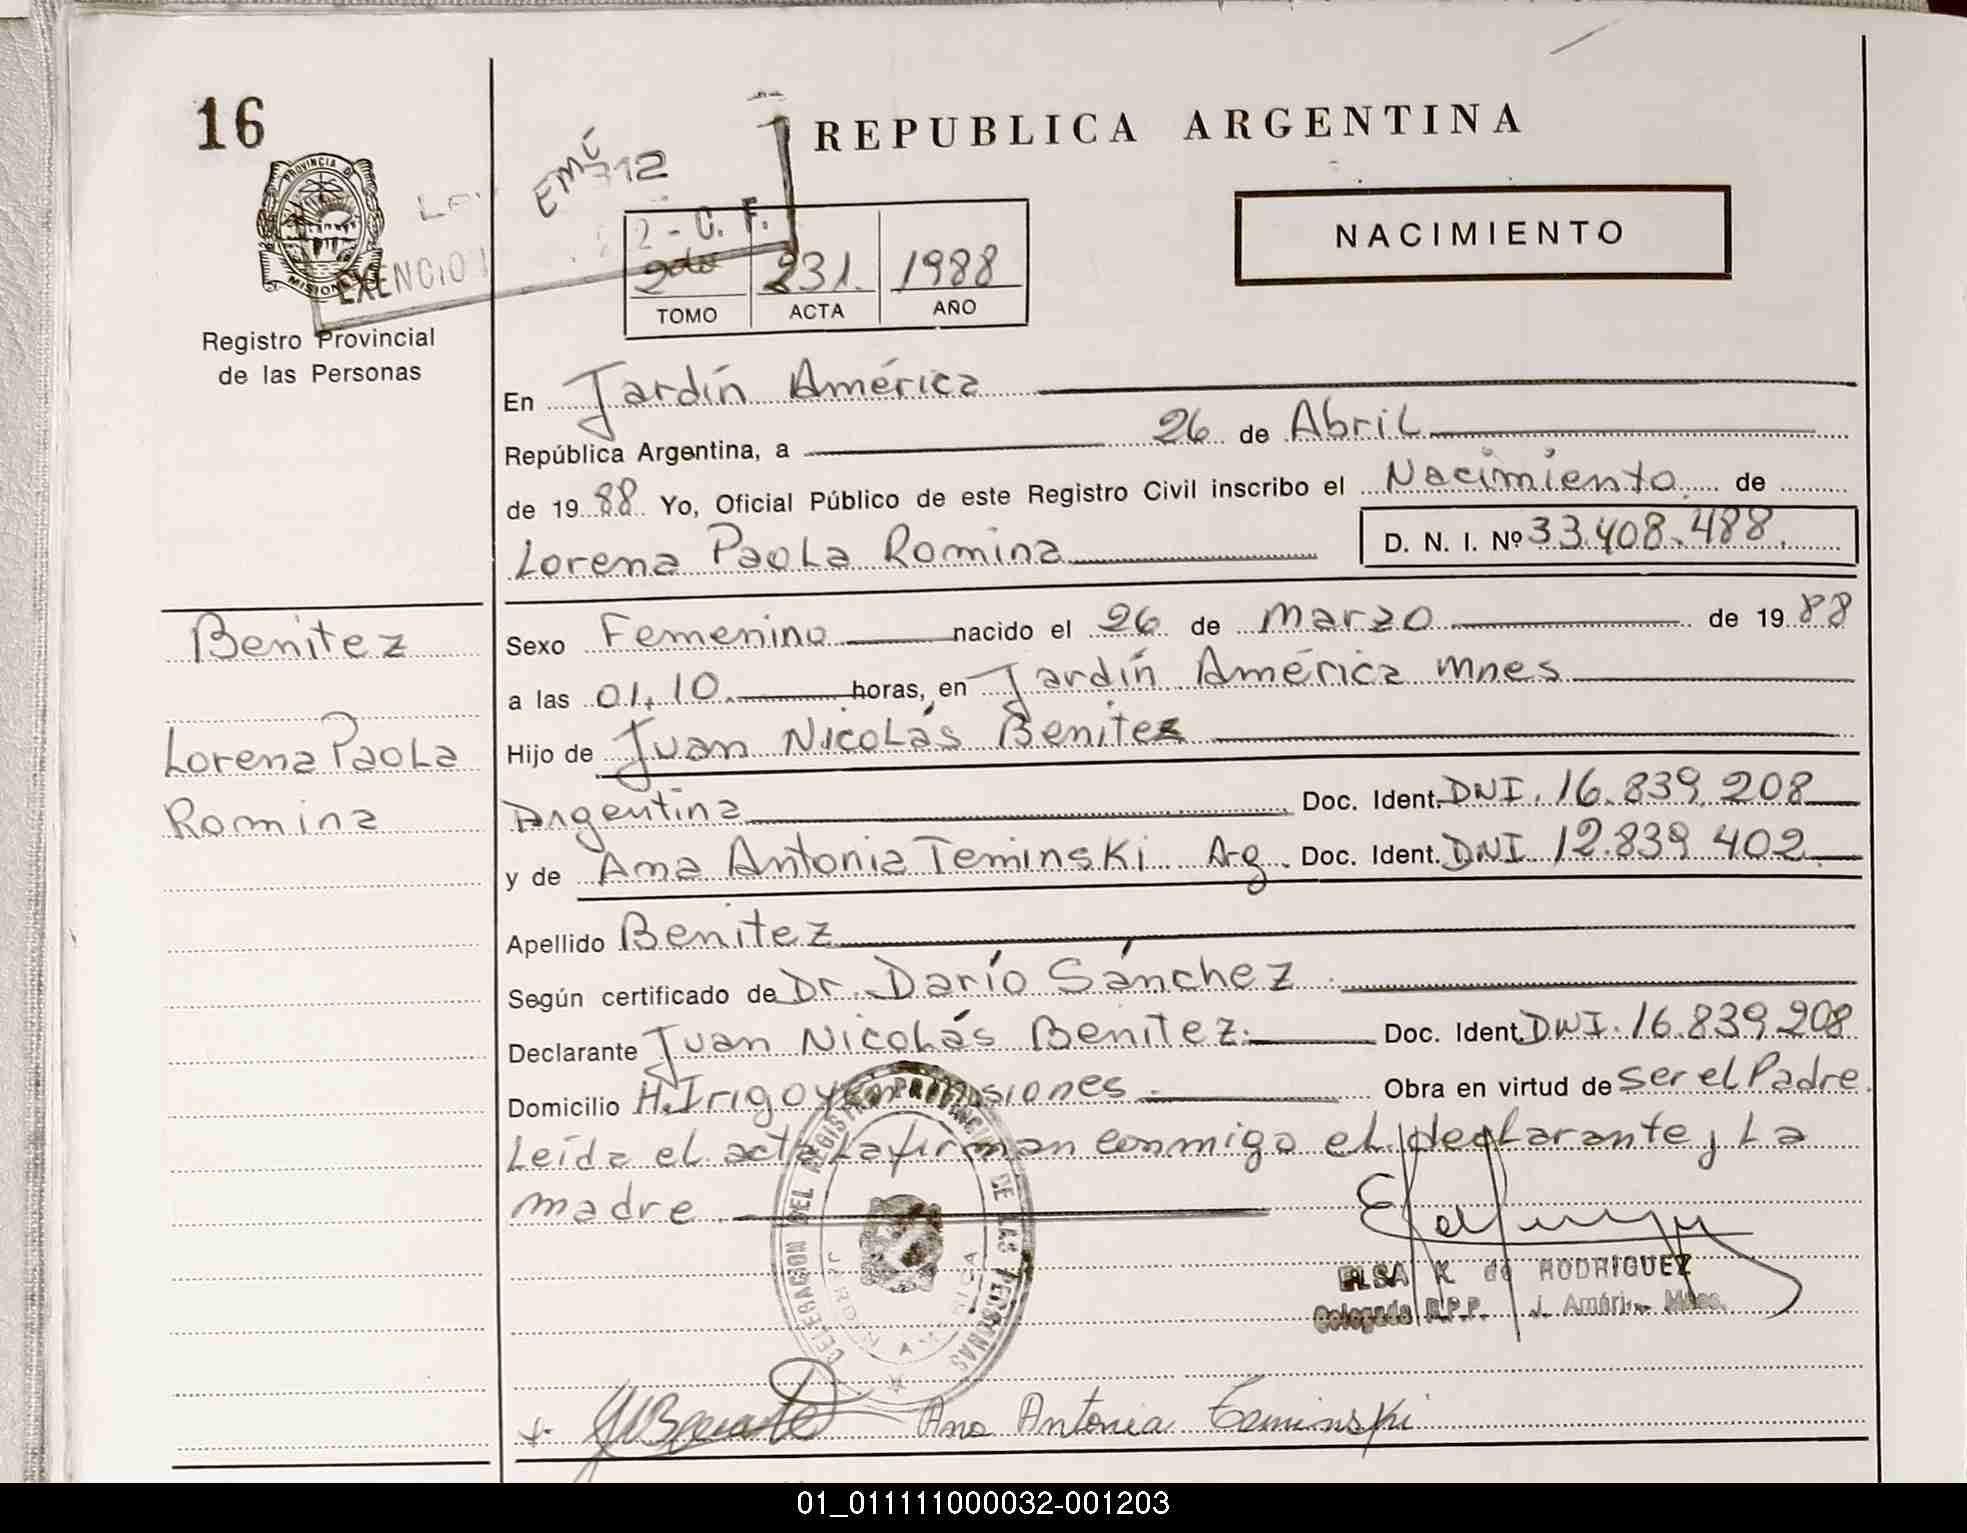 16
REPUBLICA ARGENTINA
PROVINCIA DE
MISIONES
EMi
312
EXENCION
2 - C. F.
NACIMIENTO
2do 231. 1988
TOMO ACTA AÑO
Registro Provincial
de las Personas
En Jardín América
República Argentina, a 26 de Abril
de 19 88 Yo, Oficial Público de este Registro Civil inscribo el Nacimiento de
Lorena Paola Romina D. N. I. Nº 33.408.488.
Benitez
Lorena Paola
Romina
Sexo Femenino nacido el 26 de Marzo de 19 88
a las 01,10 horas, en Jardín América Mnes
Hijo de Juan Nicolás Benitez
Argentina Doc. Ident. DNI. 16.839.208
y de Ana Antonia Teminski Arg. Doc. Ident. DNI 12.839.402
Apellido Benitez
Según certificado de Dr. Darío Sánchez
Declarante Juan Nicolás Benitez. Doc. Ident. DNI. 16.839.208
Domicilio H. Irigoyen Misiones. Obra en virtud de ser el Padre.
Leída el acta la firman conmigo el declarante, La
madre.
DELEGACION DEL REGISTRO PROVINCIAL DE LAS PERSONAS
JARDIN AMERICA
ELSA K. de RODRIGUEZ
Delegada R.P.P. J. América Mnes.
Ana Antonia Teminski
01_011111000032-001203